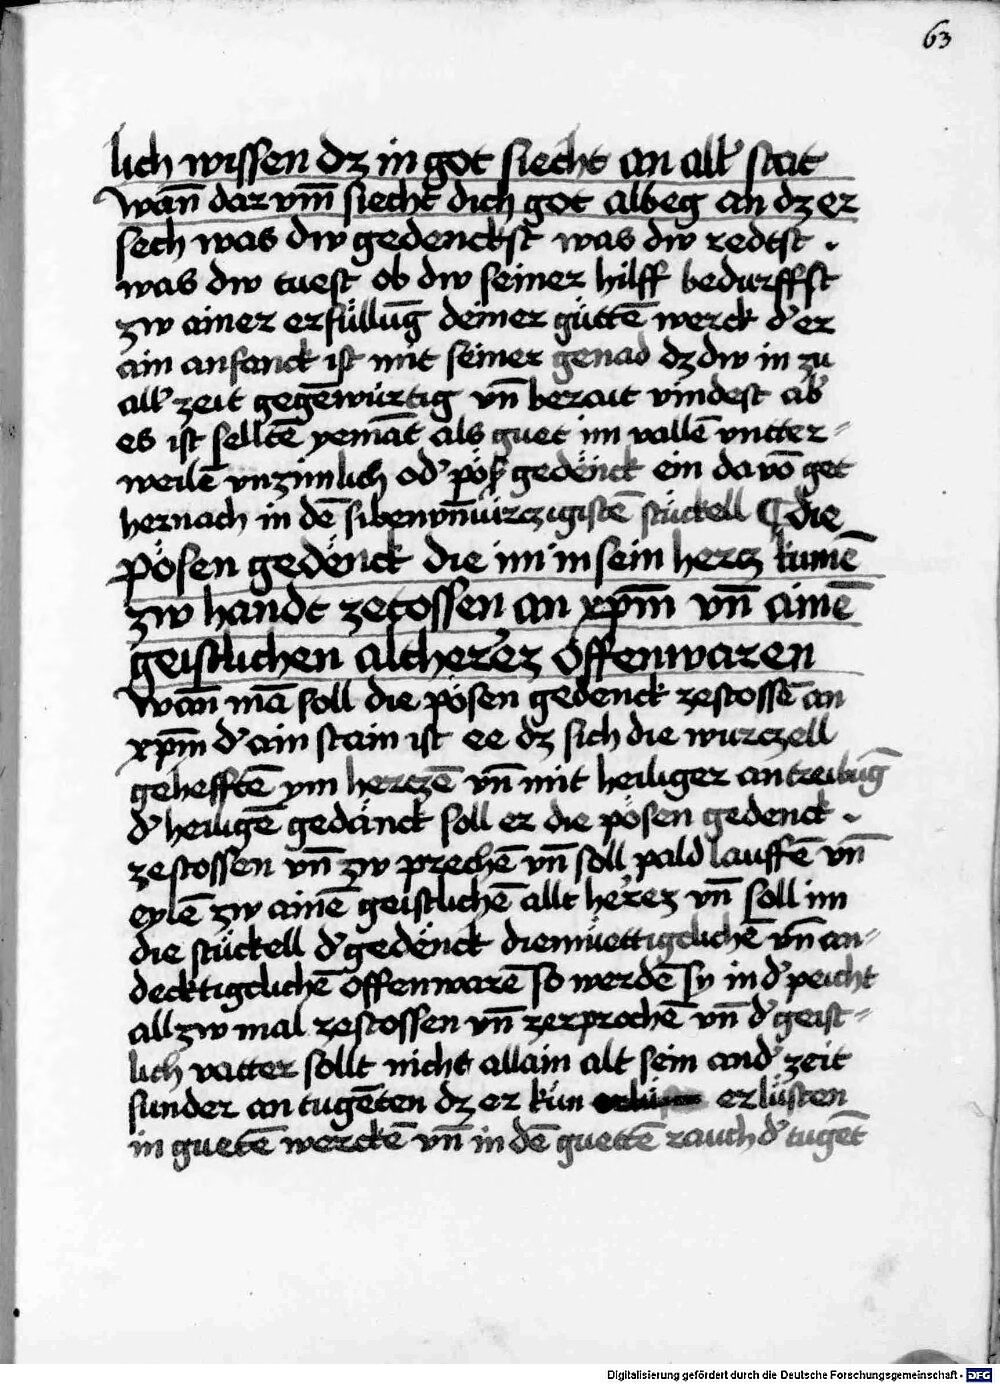 63
lich wissen dz in got siecht an all' stat
Wan̄ dar vm̄ siecht dich got albeg an dz er
sech was dw gedenckst was dw redtst .
was dw tuest ob dw seiner hilff bedurffst
zw ainer erfüllūg deiner güttē werck d' er
ain anfanck ist mit seiner genad dz dw in zu
all' zeit gegēwürtig vn̄ berait vindest ab'
es ist selltē yemāt als guet im vallē vntter=
weilē vnzimlich od' pöß gedenck ein da vō get
hernach in dē sibenvn̄uirczigistē stückell ¶ die
pösen gedenck die im in sein hercz kumē
zw handt zestossen an xpm̄ vn̄ ainē
geistlichen altherer öffenwaren
Wan̄ mā soll die pösen gedenck zestossē an
xpm̄ d' ain stain ist ee dz sich die wurczell
gehefftē ym herczē vn̄ mit heiliger antreibūg
d' heiligē gedänck soll er die pösen gedenck .
zestossen vn̄ zw prechē vn̄ soll pald lauffē vn̄
eylē zw ainē geistlichē allt herer vn̄ soll im
die stückell d' gedenck diemüettigclichē vn̄ an=
decktigclichē öffenwarē so werdē sy in d' peicht
all zw mal zestossen vn̄ zerprochē vn̄ d' geist=
lich vatter sollt nicht allain alt sein an d' zeit
sunder an tugēten dz er kün erlüsten
in guetē werckē vn̄ in dē guettē rauch d' tugēt
Digitalisierung gefördert durch die Deutsche Forschungsgemeinschaft - DFG